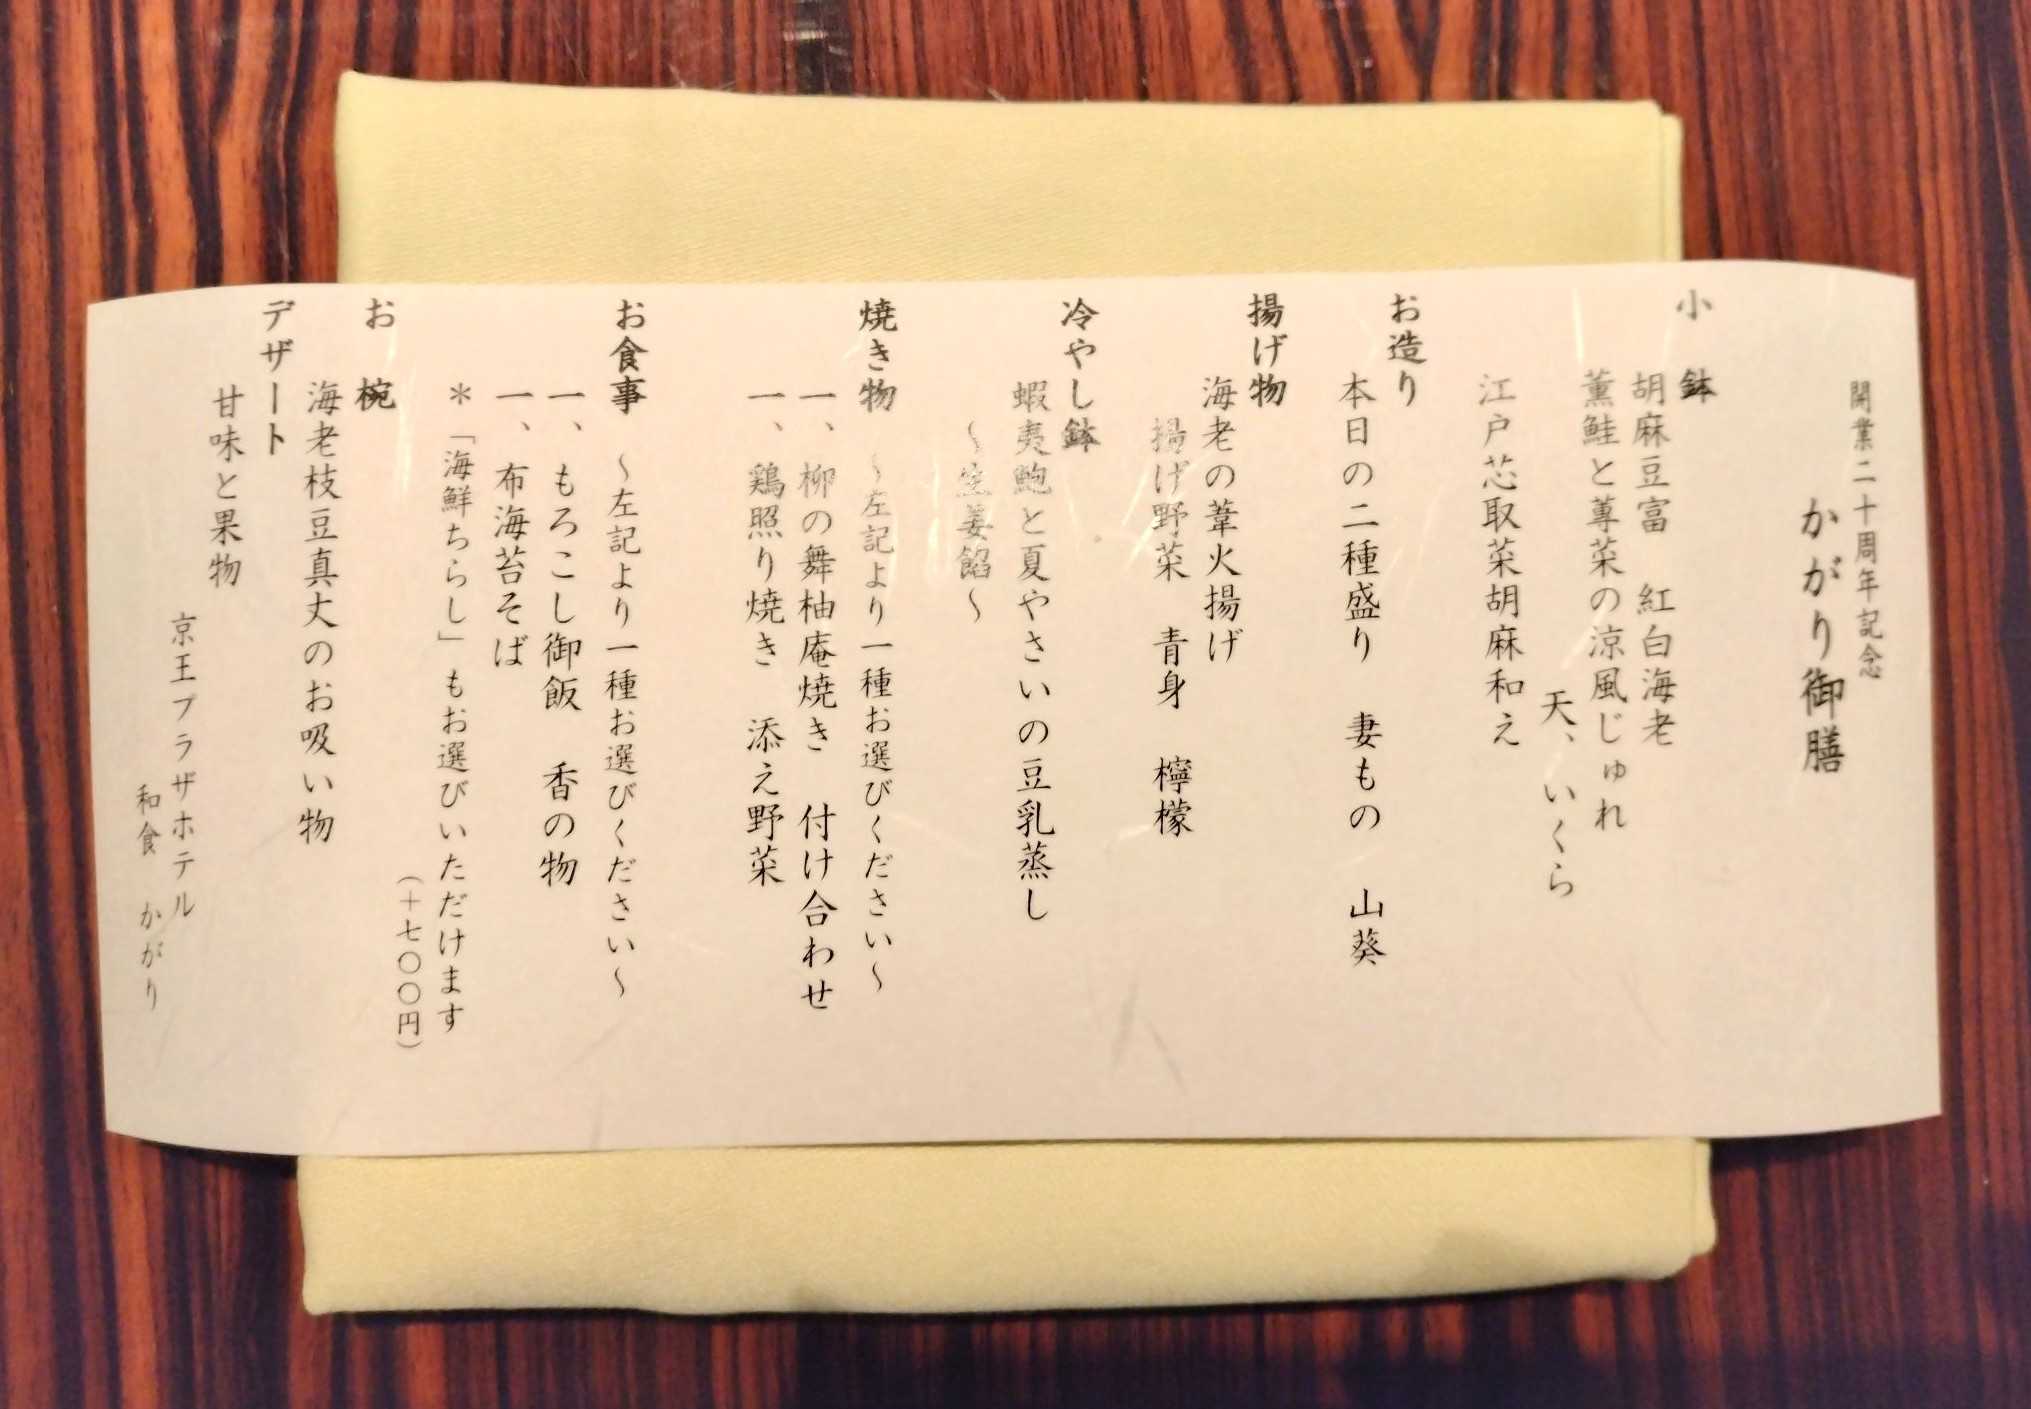 開業二十周年記念
かがり御膳
小鉢
胡麻豆富　紅白海老
薫鮭と蓴菜の涼風じゅれ
天、いくら
江戸芯取菜胡麻和え
お造り
本日の二種盛り　妻もの　山葵
揚げ物
海老の葦火揚げ
揚げ野菜　青身　檸檬
冷やし鉢
蝦夷鮑と夏やさいの豆乳蒸し
～生姜餡～
焼き物　～左記より一種お選びください～
一、柳の舞柚庵焼き　付け合わせ
一、鶏照り焼き　添え野菜
お食事　～左記より一種お選びください～
一、もろこし御飯　香の物
一、布海苔そば
＊「海鮮ちらし」もお選びいただけます
（＋七〇〇円）
お椀
海老枝豆真丈のお吸い物
デザート
甘味と果物
京王プラザホテル
和食　かがり